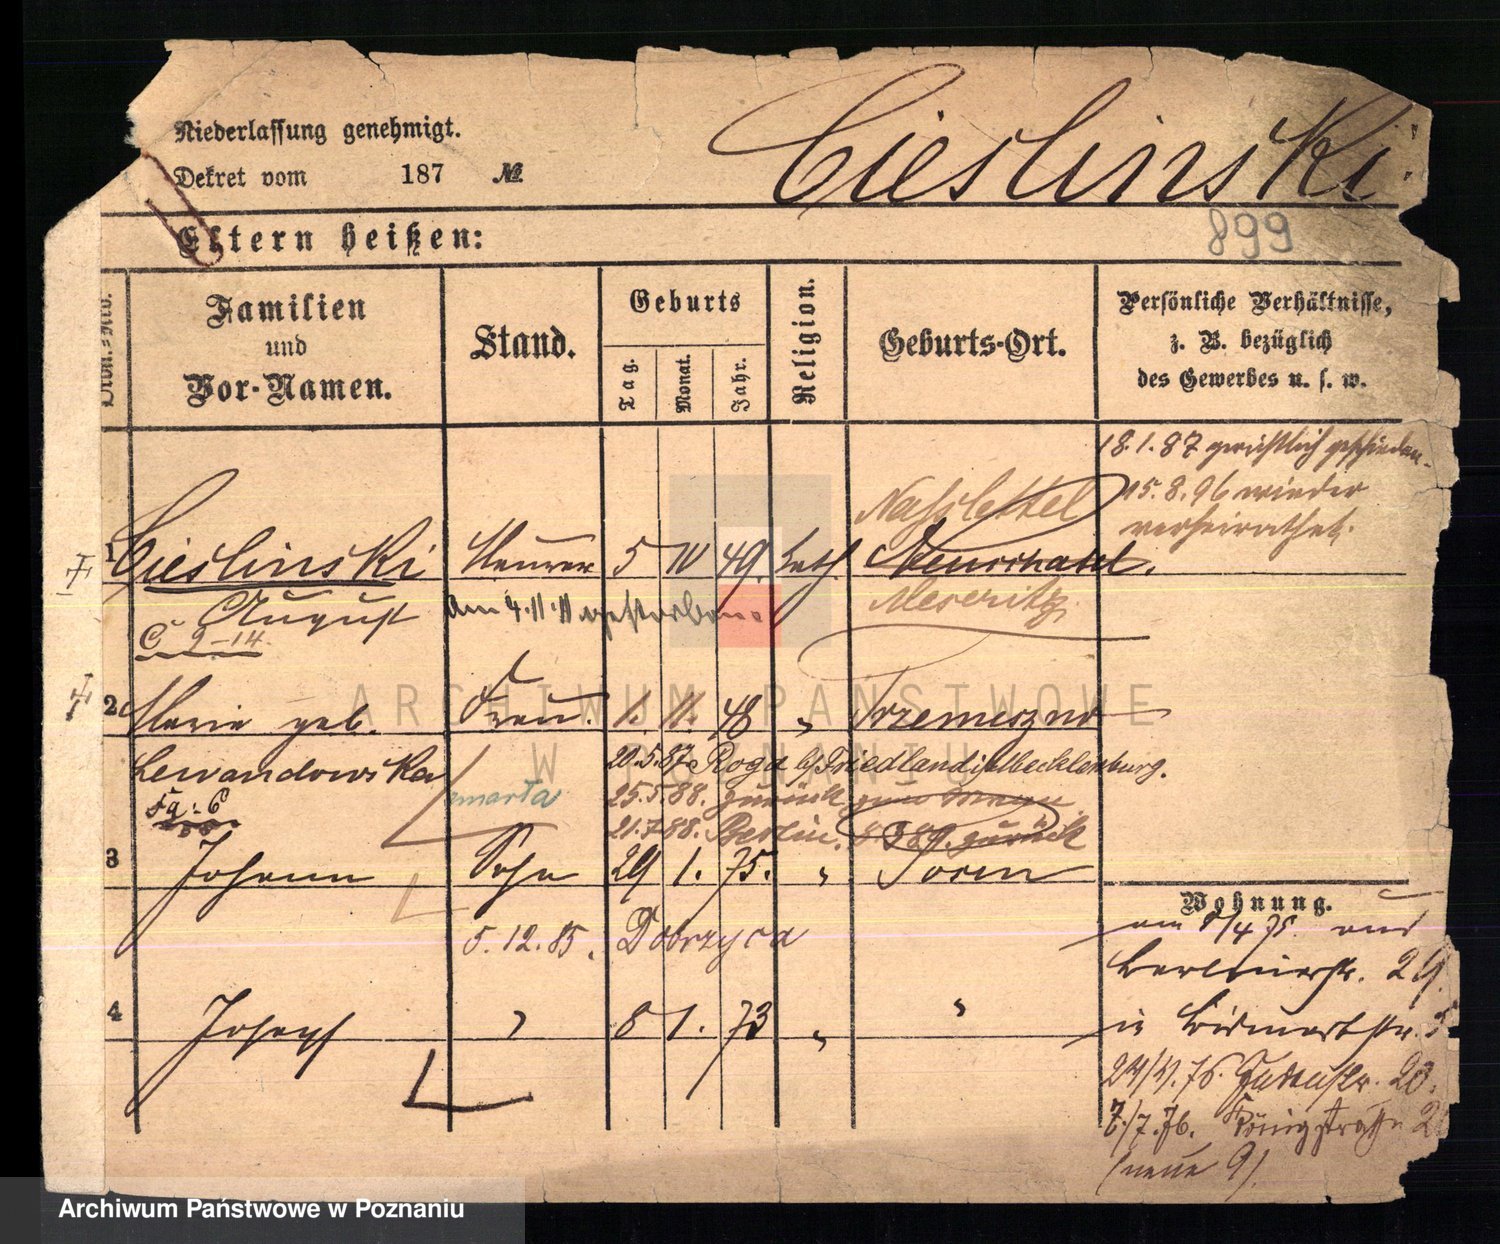 Niederlassung genehmigt.
Dekret vom 187 №
Cieslinski.
899
Eltern heißen:
Ordn.-Nro.
Familien
und
Vor-Namen.
Stand.
Geburts
Tag.
Monat.
Jahr.
Religion.
Geburts-Ort.
Persönliche Verhältnisse,
z. B. bezüglich
des Gewerbes u. s. w.
18.1.87 gerichtlich geschieden.
15.8.96 wieder
verheirathet.
1 Cieslinski Maurer 5 IV 49. kath
August am 4.11.11 gestorben
Meseritz
C 9-14
2 Marie geb. Frau. 1. 11. 48 " Trzemeszno
Lewandowska
20.5.87. Roga b/Friedland i/Mecklenburg.
zmarła
25.5.88. zurück
Fa: 6
21.7.88. Berlin. zurück
3 Johann Sohn 29 1. 75. "
5.12.85. Dobrzyca
4 Joseph " 8 1. 73 " "
Wohnung.
am 8/4 75. aus
Berlinerstr. 29.
in Bismarkstr. 5
24/4. 76. Judenstr. 20.
7./7.76. Königstraße 2
(neue 9).
ARCHIWUM PAŃSTWOWE
W POZNANIU
Archiwum Państwowe w Poznaniu